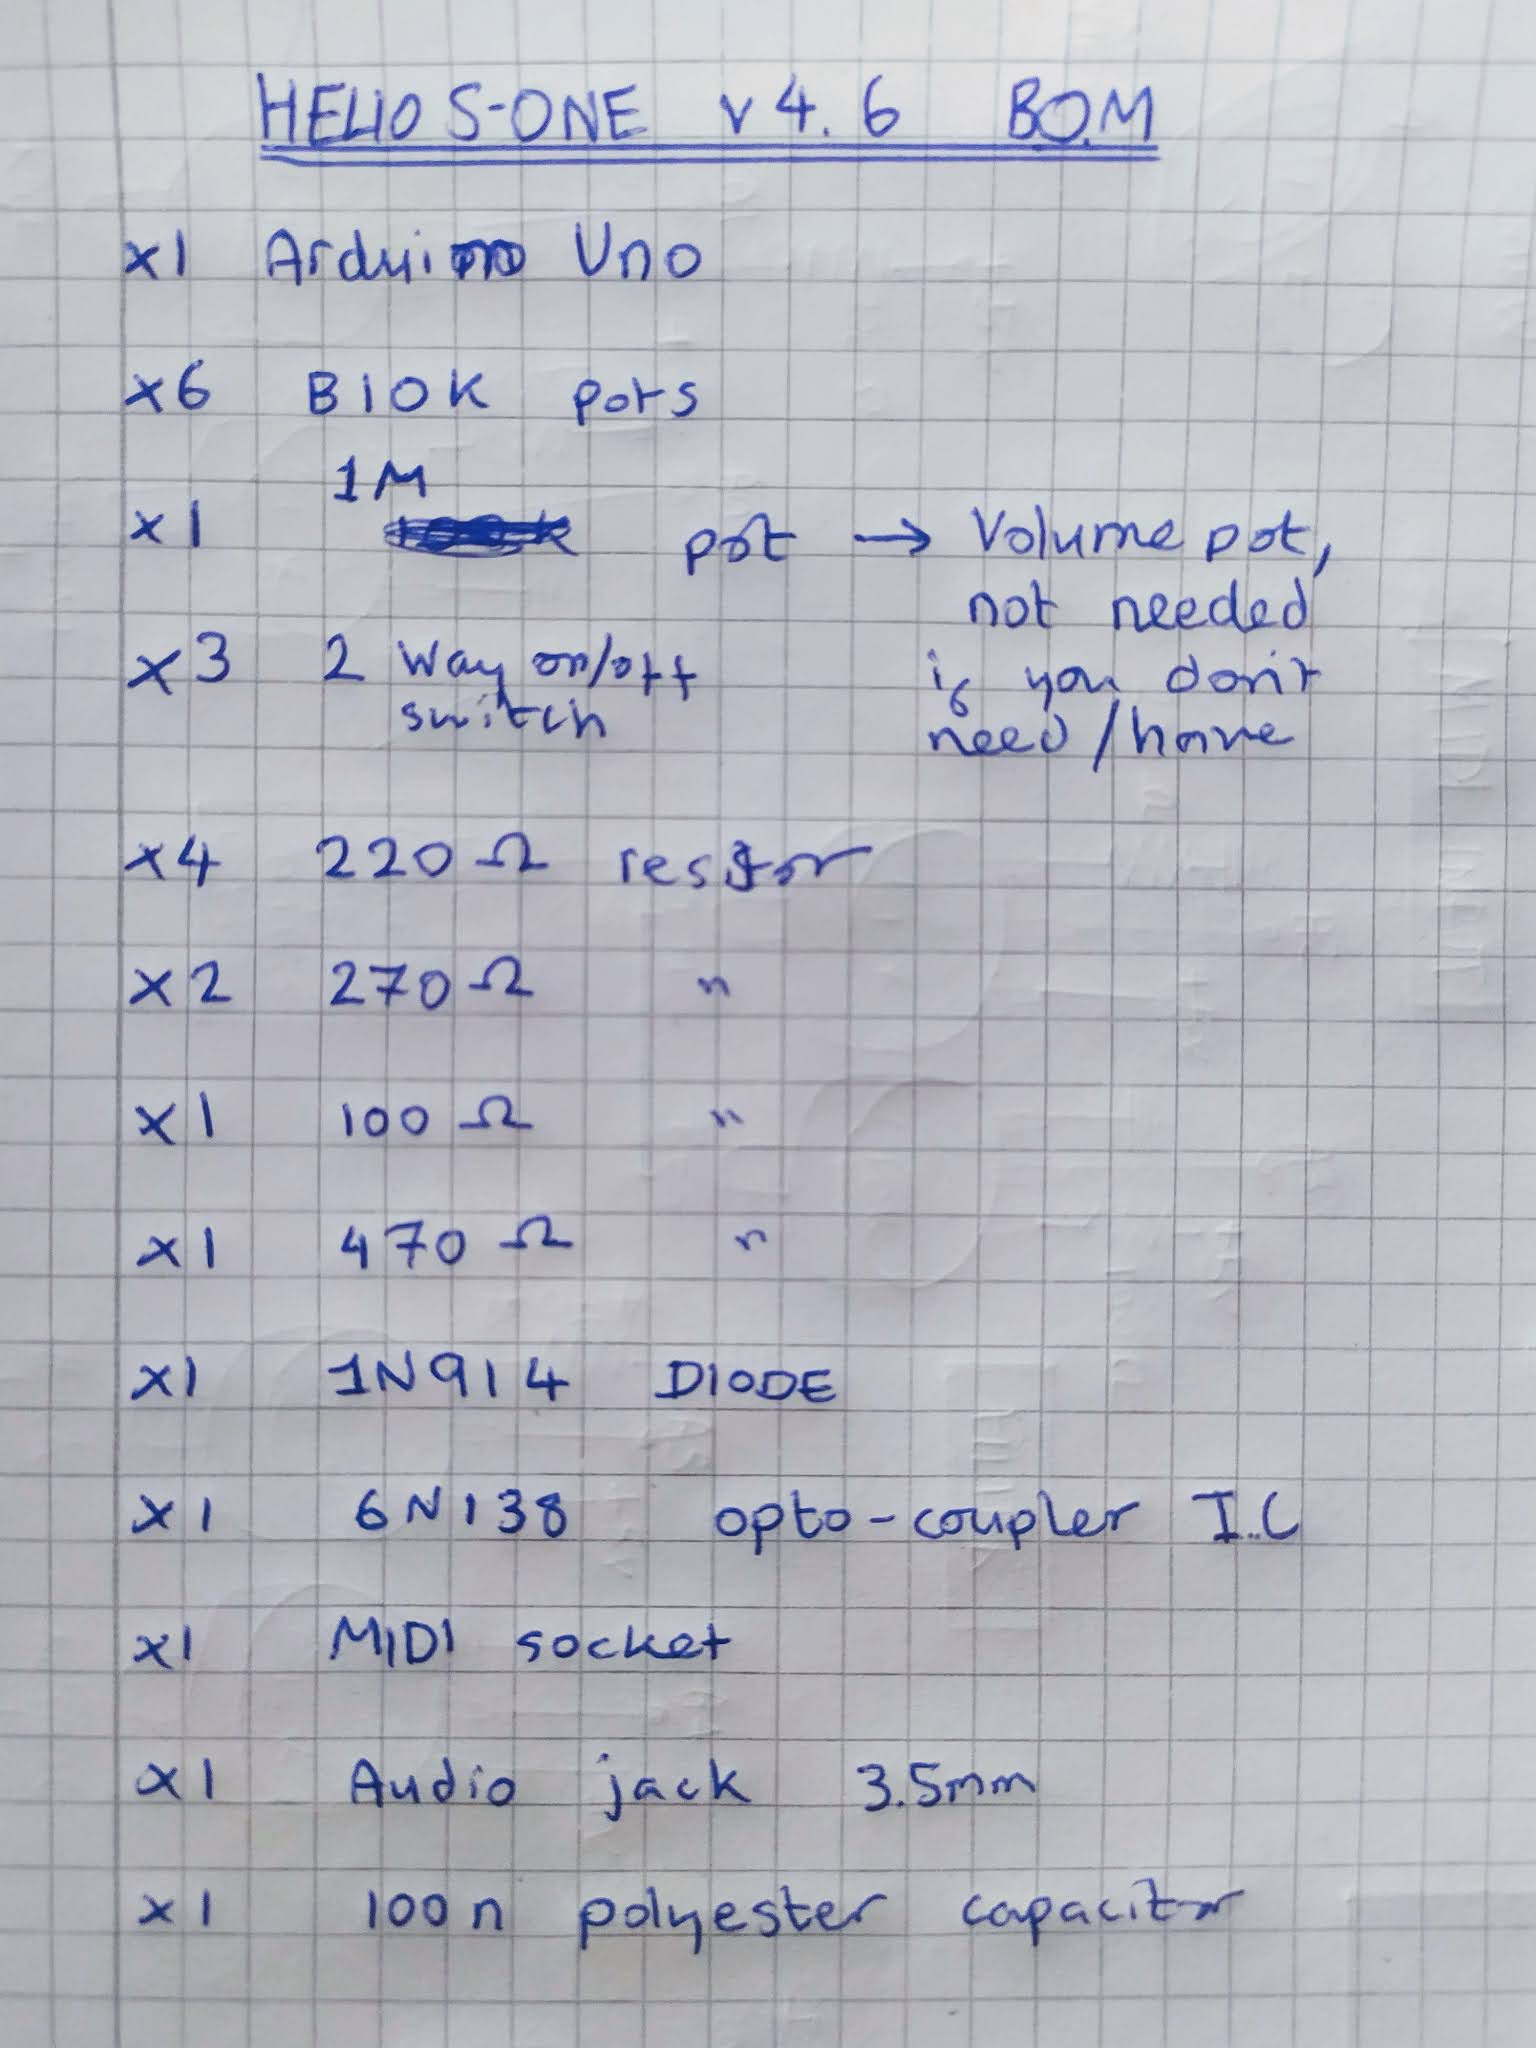 HELIOS-ONE v4.6 BOM
x1 Arduino Uno
x6 B10K pots
1M
x1 pot → Volume pot,
not needed
x3 2 way on/off if you don't
switch need/have
x4 220Ω resistor
x2 270Ω "
x1 100Ω "
x1 470Ω "
x1 1N914 DIODE
x1 6N138 opto-coupler I.C
x1 MIDI socket
x1 Audio jack 3.5mm
x1 100n polyester capacitor